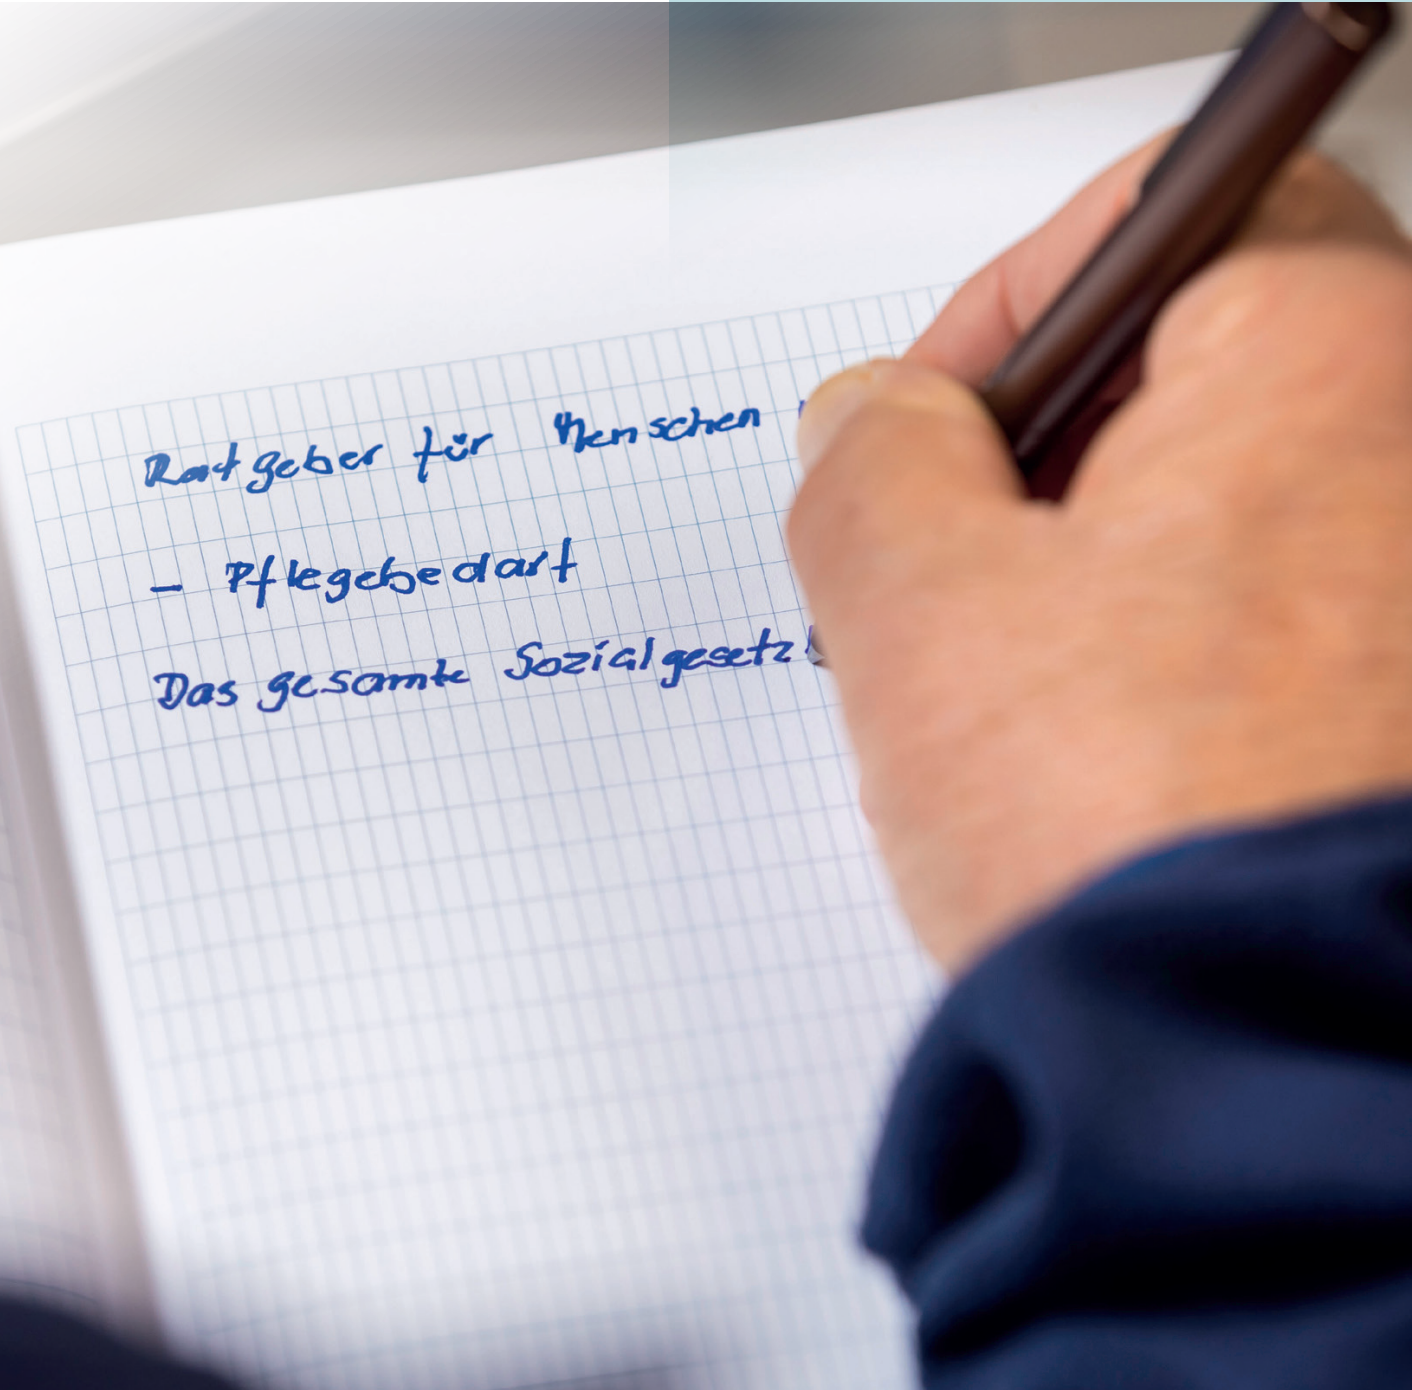 Ratgeber für Menschen
- Pflegebedarf
Das gesamte Sozialgesetzb